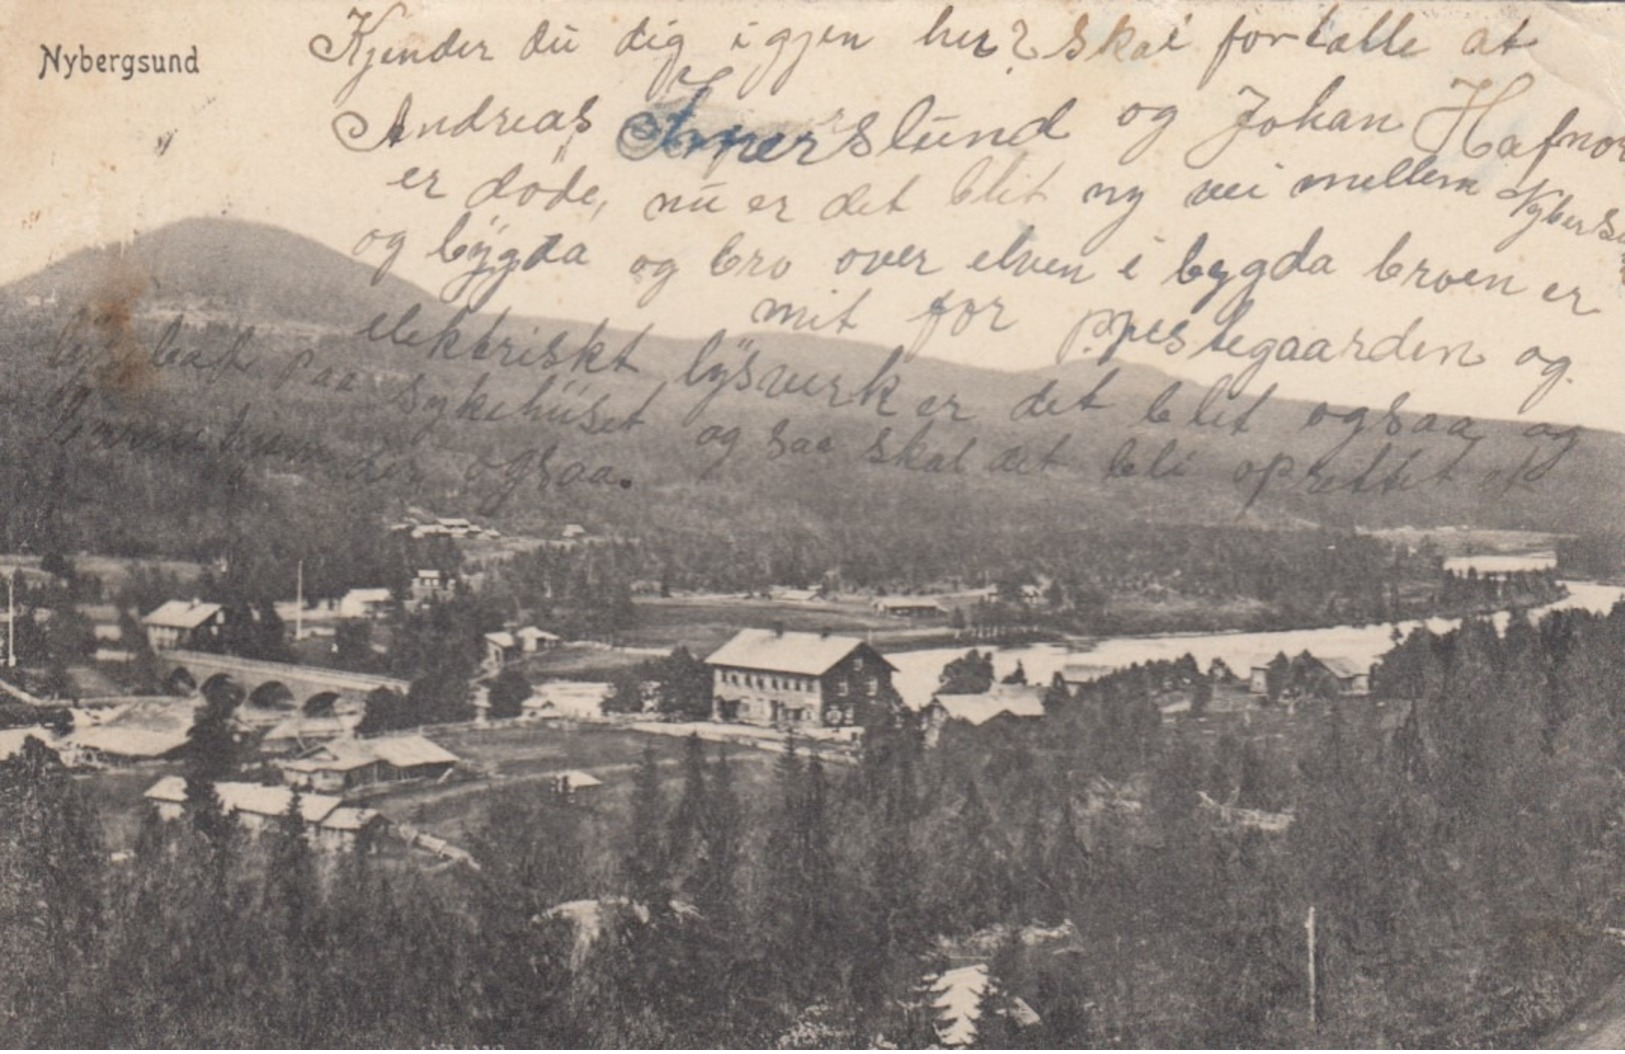 Nybergsund
Kjender du dig igjen her? Skal fortælle at
Andreas Imerslund og Johan Hafnor
er døde, nu er det blit ny vei mellem Nybersu
og bygda og bro over elven i bygda broen er
mit for prestegaarden og
elektriskt lysverk er det blit ogsaa og
paa sykehuset og saa skal det bli oprettet et
der ogsaa.